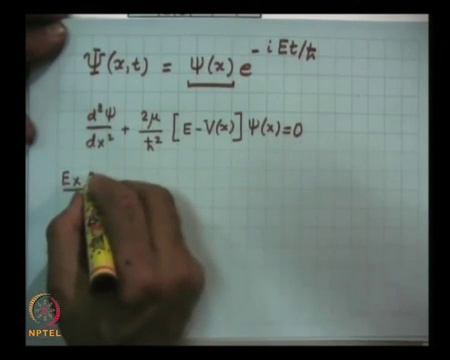 Ψ(x,t) = ψ(x) e^{-iEt/ħ}
d²ψ/dx² + 2μ/ħ² [E-V(x)] ψ(x)=0
Ex
NPTEL